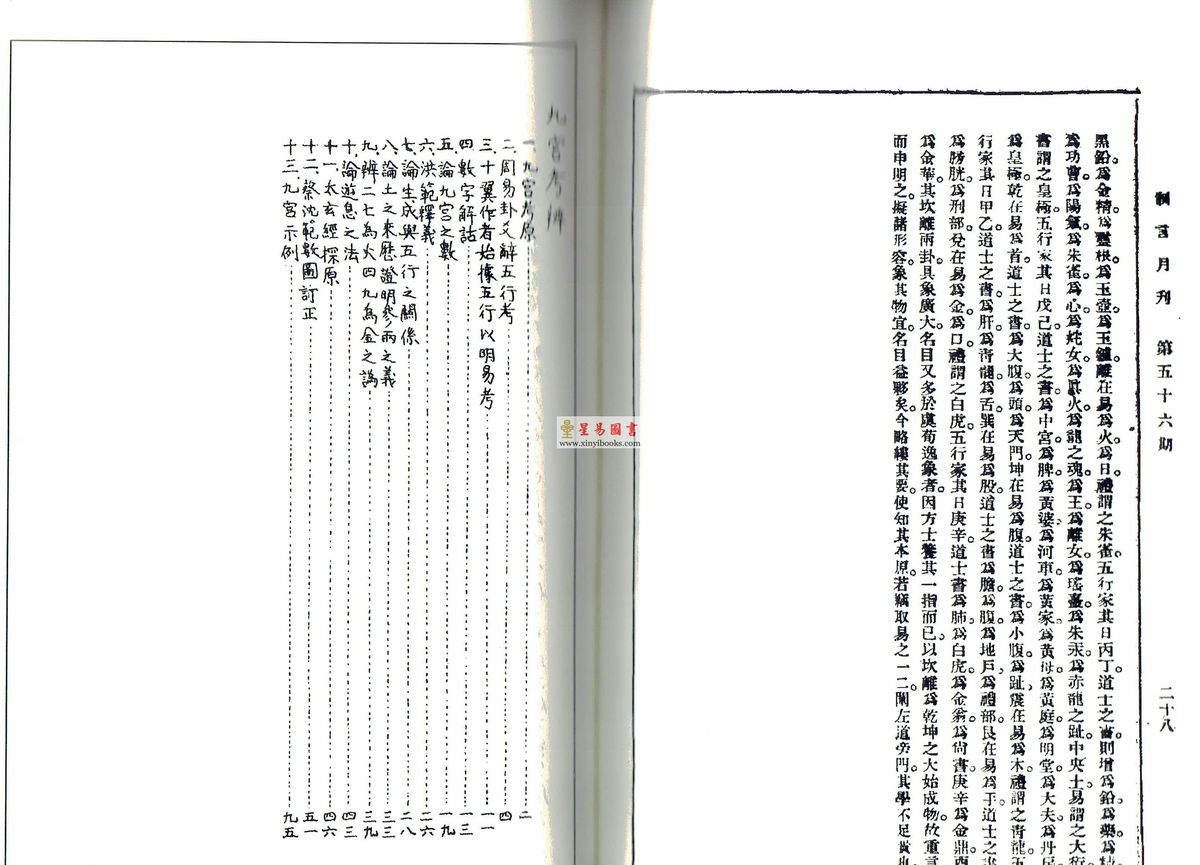 制言月刊 第五十六期 二十八
黑鉛。為金精。為靈根。為玉壺。為玉鑪。離在易為火。為日。禮謂之朱雀。五行家其日丙丁。道士之書則增為鉛。為藥。為
為功曹。為陽氣。為朱雀。為心。為姹女。為真火。為龍之魂。為王。為離女。為瑤臺。為朱汞。為赤龍之趾。中央土。易謂之大衍。
書謂之皇極。五行家其日戊己。道士之書。為中宮。為脾。為黃婆、為河車。為黃家。為黃母。為黃庭。為明堂。為大夫。為丹
為皇極。乾在易為首。道士之書。為大腹。為頭。為天門。坤在易為腹。道士之書。為小腹。為趾、震在易為木。禮謂之青龍。五
行家其日甲乙。道士之書。為肝。為青龍。為舌。巽在易為股。道士之書為膽。為腹。為地戶。為禮部。艮在易為手。道士之書
為膀胱。為刑部。兌在易為金。為口。禮謂之白虎。五行家其日庚辛。道士書為肺。為白虎。為金翁。為尚書。庚辛為金鼎。酉
為金華。其坎離兩卦。具象廣大。名目又多於虞荀逸象者。因方士養其一指而已。以坎離為乾坤之大始成物。故重言
而申明之。擬諸形容。象其物宜。名目益夥矣。今略縷其要。使知其本原。若竊取易之一二。闌左道旁門。其學不足貴也
九宮考辨
一、九宮考原 二
二、周易卦爻辭五行考 四
三、十翼作者始據五行以明易考 一一
四、數字解詁 一三
五、論九宮之數 一九
六、洪範釋義 二六
七、論生成與五行之關係 二八
八、論土之來歷證明參兩之義 三三
九、辨二七為火四九為金之譌 三九
十、論遊息之法 四三
十一、太玄經探原 四六
十二、蔡沈範數圖訂正 五一
十三、九宮示例 九五
星易圖書
www.xinyibooks.com